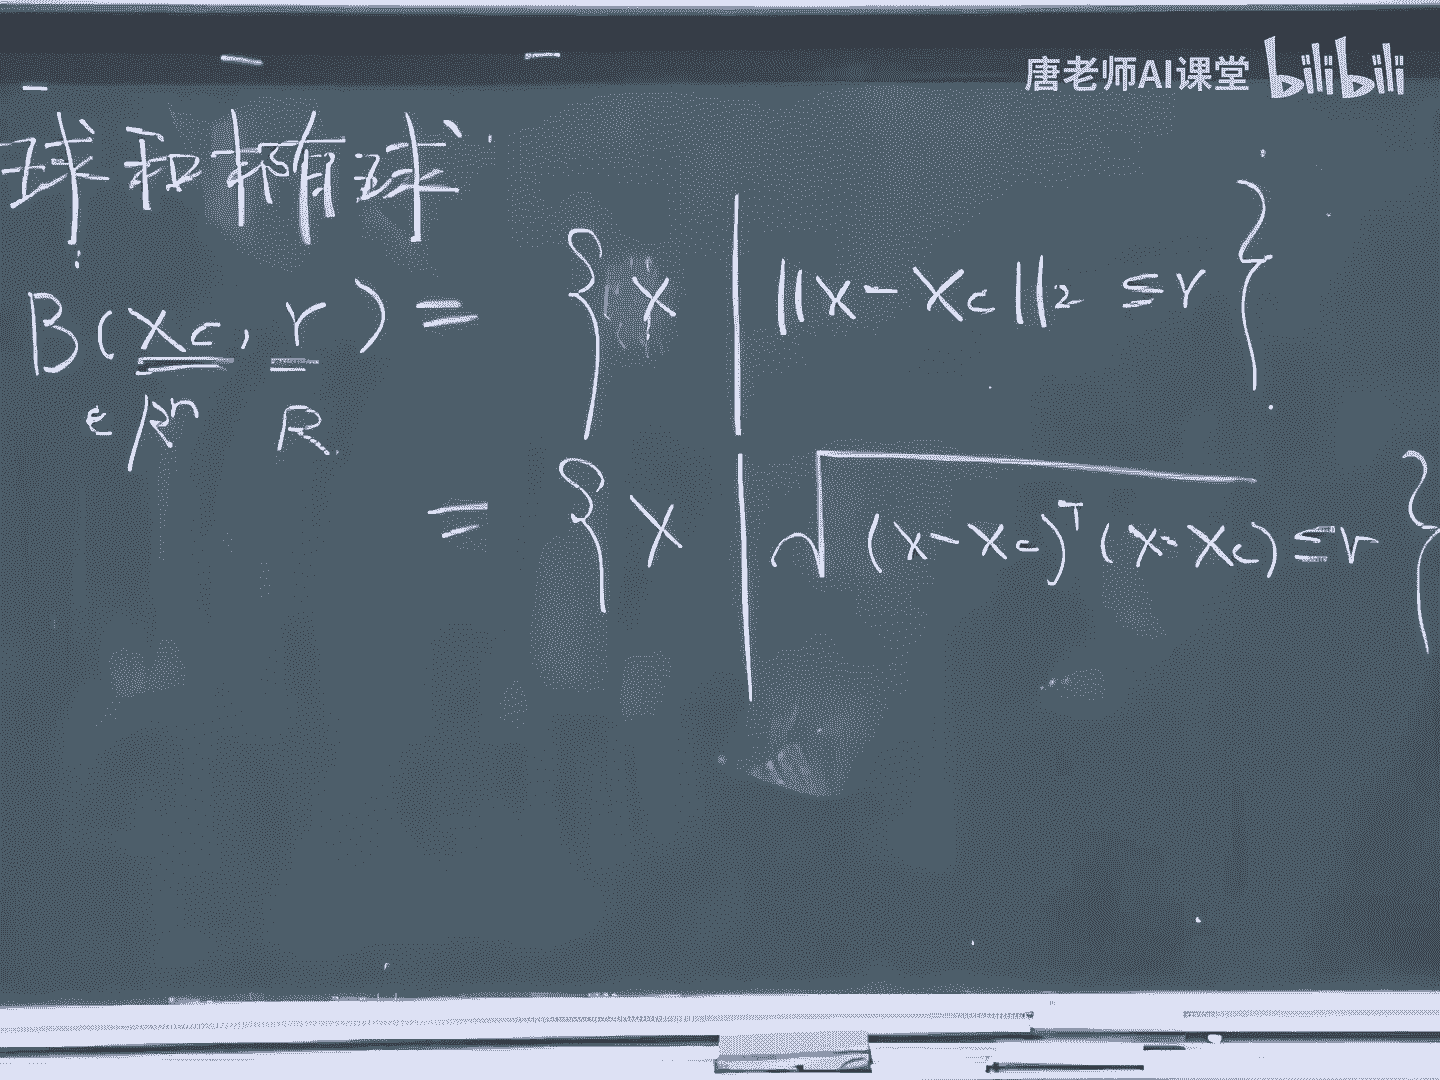 唐老师AI课堂 bilibili
球和椭球
B(Xc, r) = {X | ||X-Xc||₂ ≤ r}
∈ Rⁿ R
= {X | √(X-Xc)ᵀ(X-Xc) ≤ r}